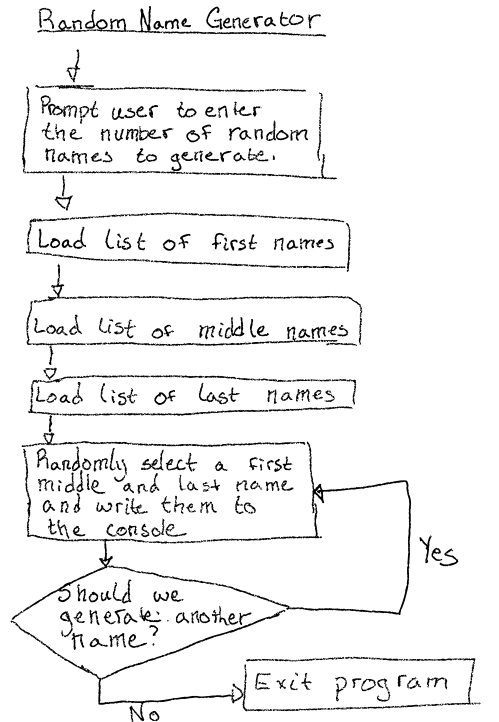 Random Name Generator
Prompt user to enter
the number of random
names to generate.
Load list of first names
Load list of middle names
Load list of last names
Randomly select a first
middle and last name
and write them to
the console
Should we
generate another
name?
Yes
No
Exit program